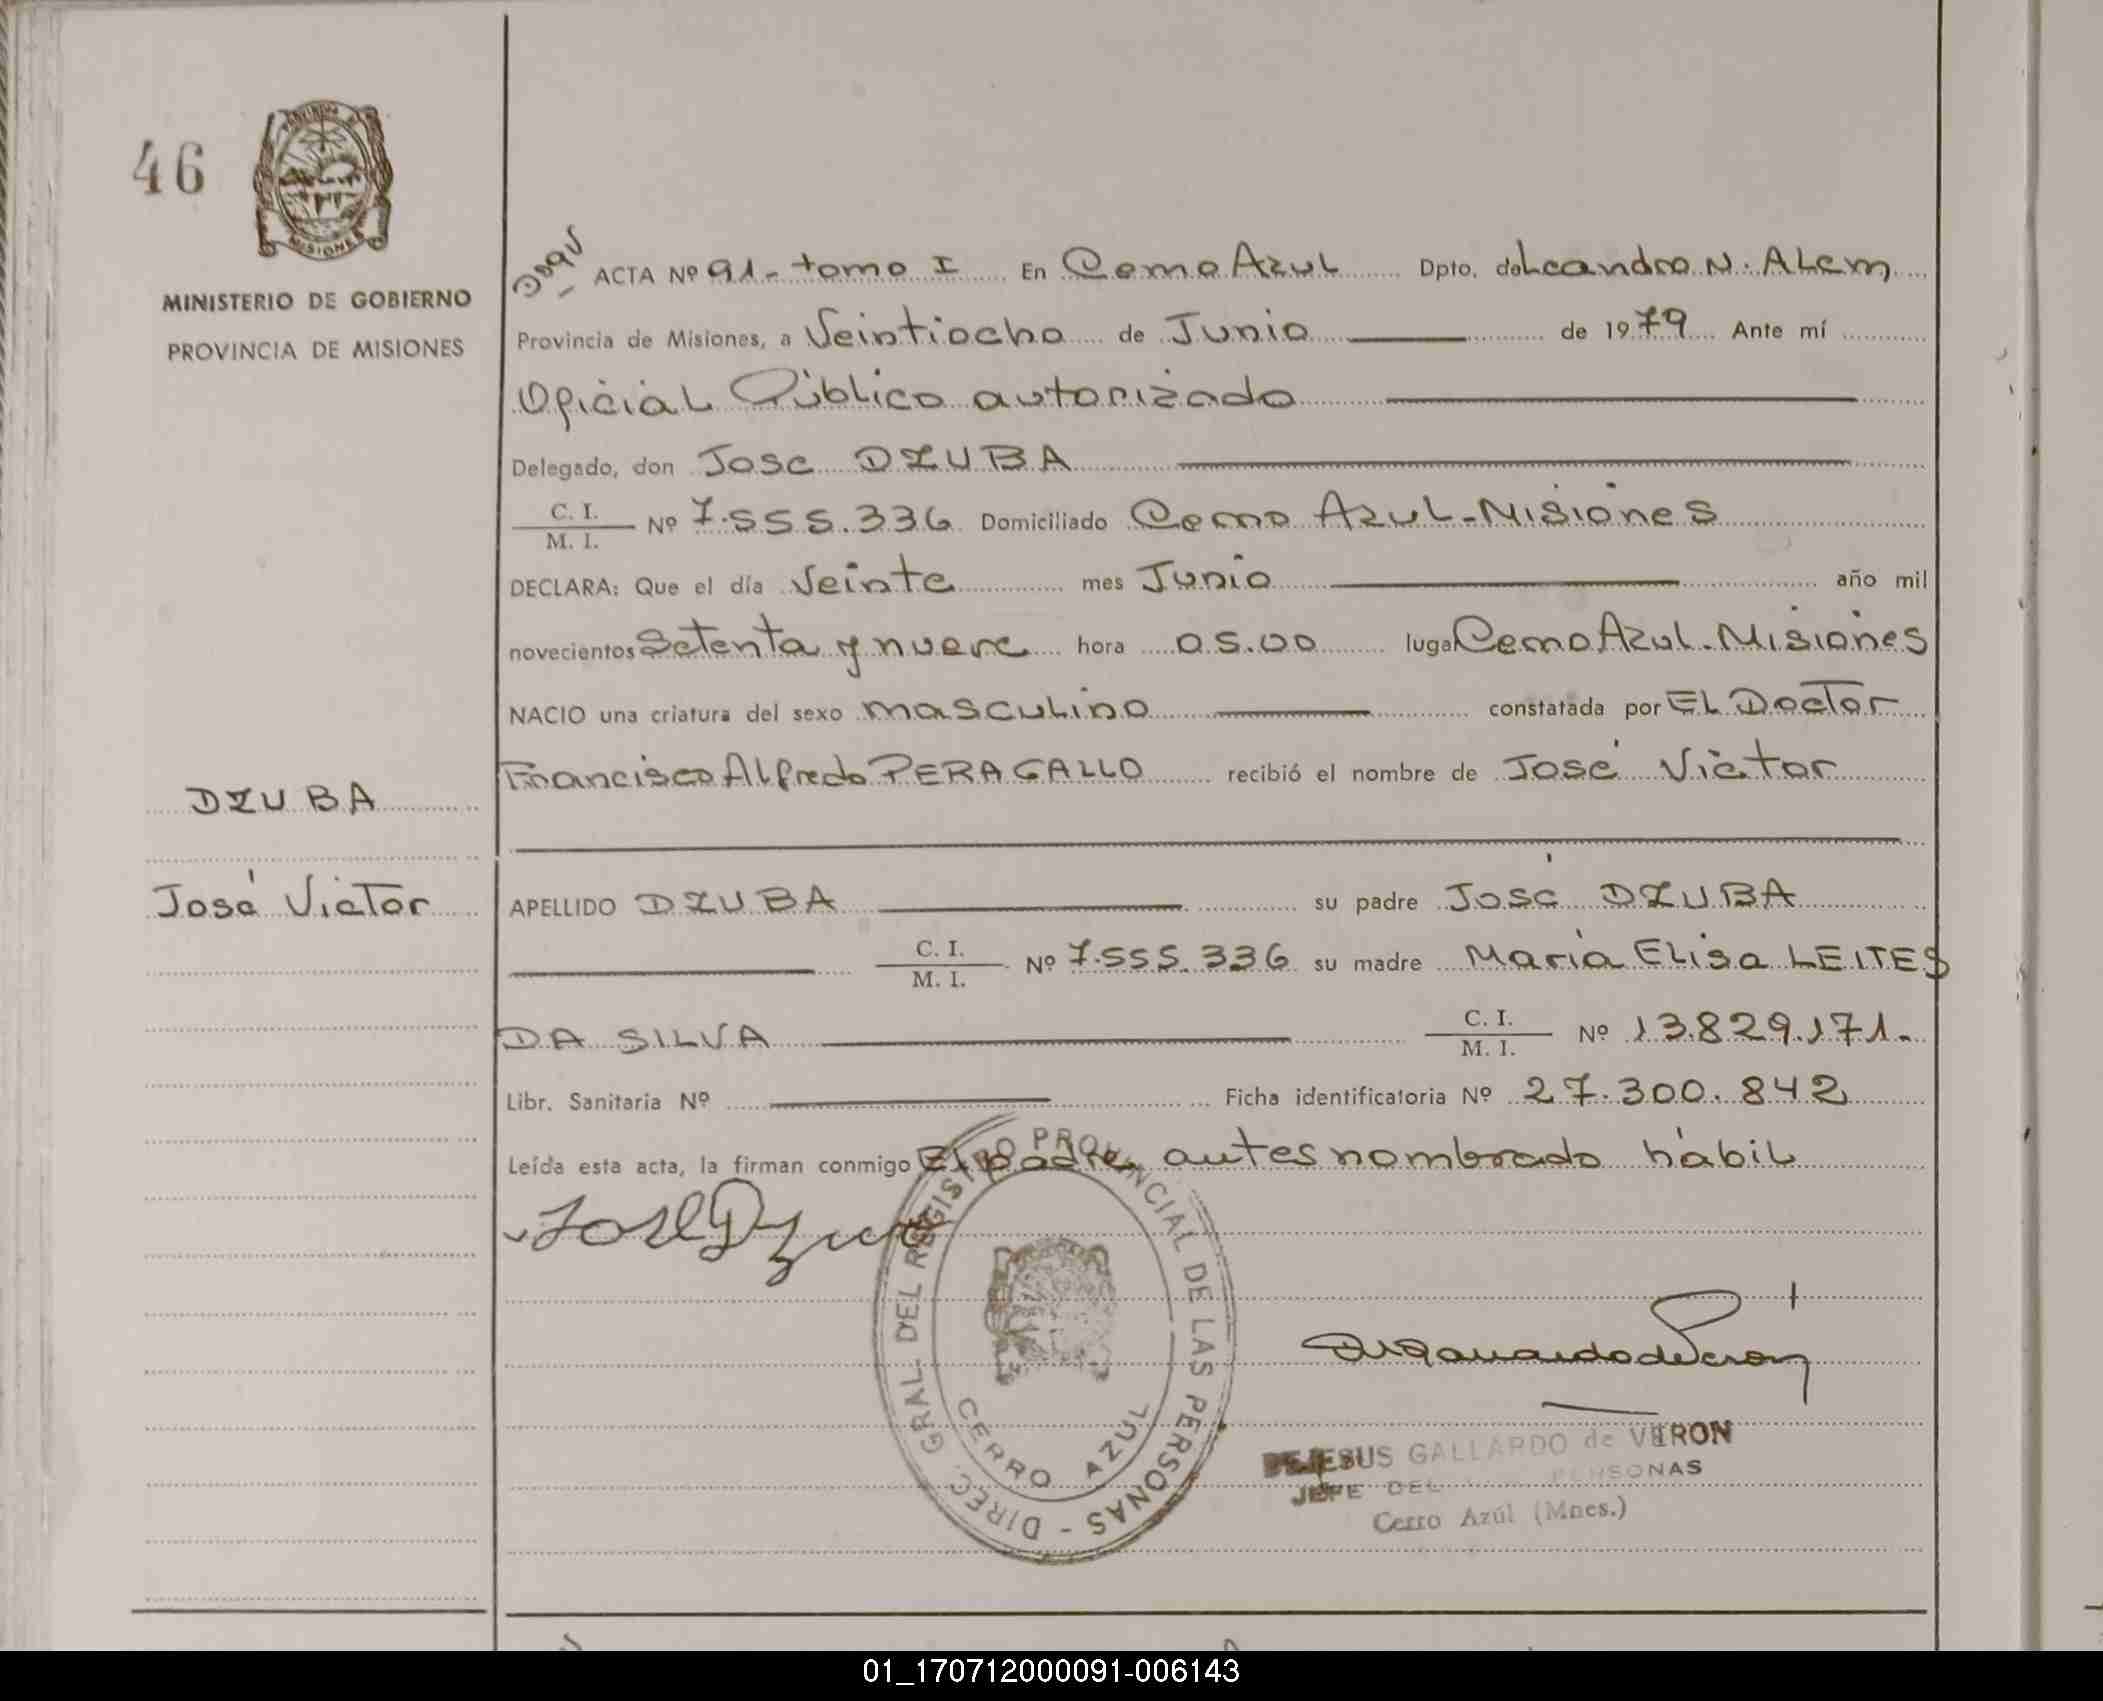 46
MISIONES
MINISTERIO DE GOBIERNO
PROVINCIA DE MISIONES
ACTA Nº 91.- tomo I En Cerro Azul Dpto. de Leandro N. Alem
Provincia de Misiones, a Veintiocho de Junio de 1979 Ante mí
Oficial Público autorizado
Delegado, don José DZUBA
C. I.
M. I. Nº 7.555.336 Domiciliado Cerro Azul-Misiones
DECLARA: Que el día Veinte mes Junio año mil
novecientos Setenta y nueve hora 05.00 lugar Cerro Azul-Misiones
NACIO una criatura del sexo masculino constatada por EL Doctor
Francisco Alfredo PERAGALLO recibió el nombre de José Victor
DZUBA
José Victor
APELLIDO DZUBA su padre José DZUBA
C. I.
M. I. Nº 7.555.336 su madre María Elisa LEITES
DA SILVA C. I.
M. I. Nº 13.829.171.-
Libr. Sanitaria Nº Ficha identificatoria Nº 27.300.842
Leída esta acta, la firman conmigo El padre antes nombrado hábil
José Dzuba
DIREC. GRAL. DEL REGISTRO PROVINCIAL DE LAS PERSONAS -
CERRO AZUL
DEJESUS GALLARDO de VERON
JEFE DEL PERSONAS
Cerro Azúl (Mnes.)
01_170712000091-006143